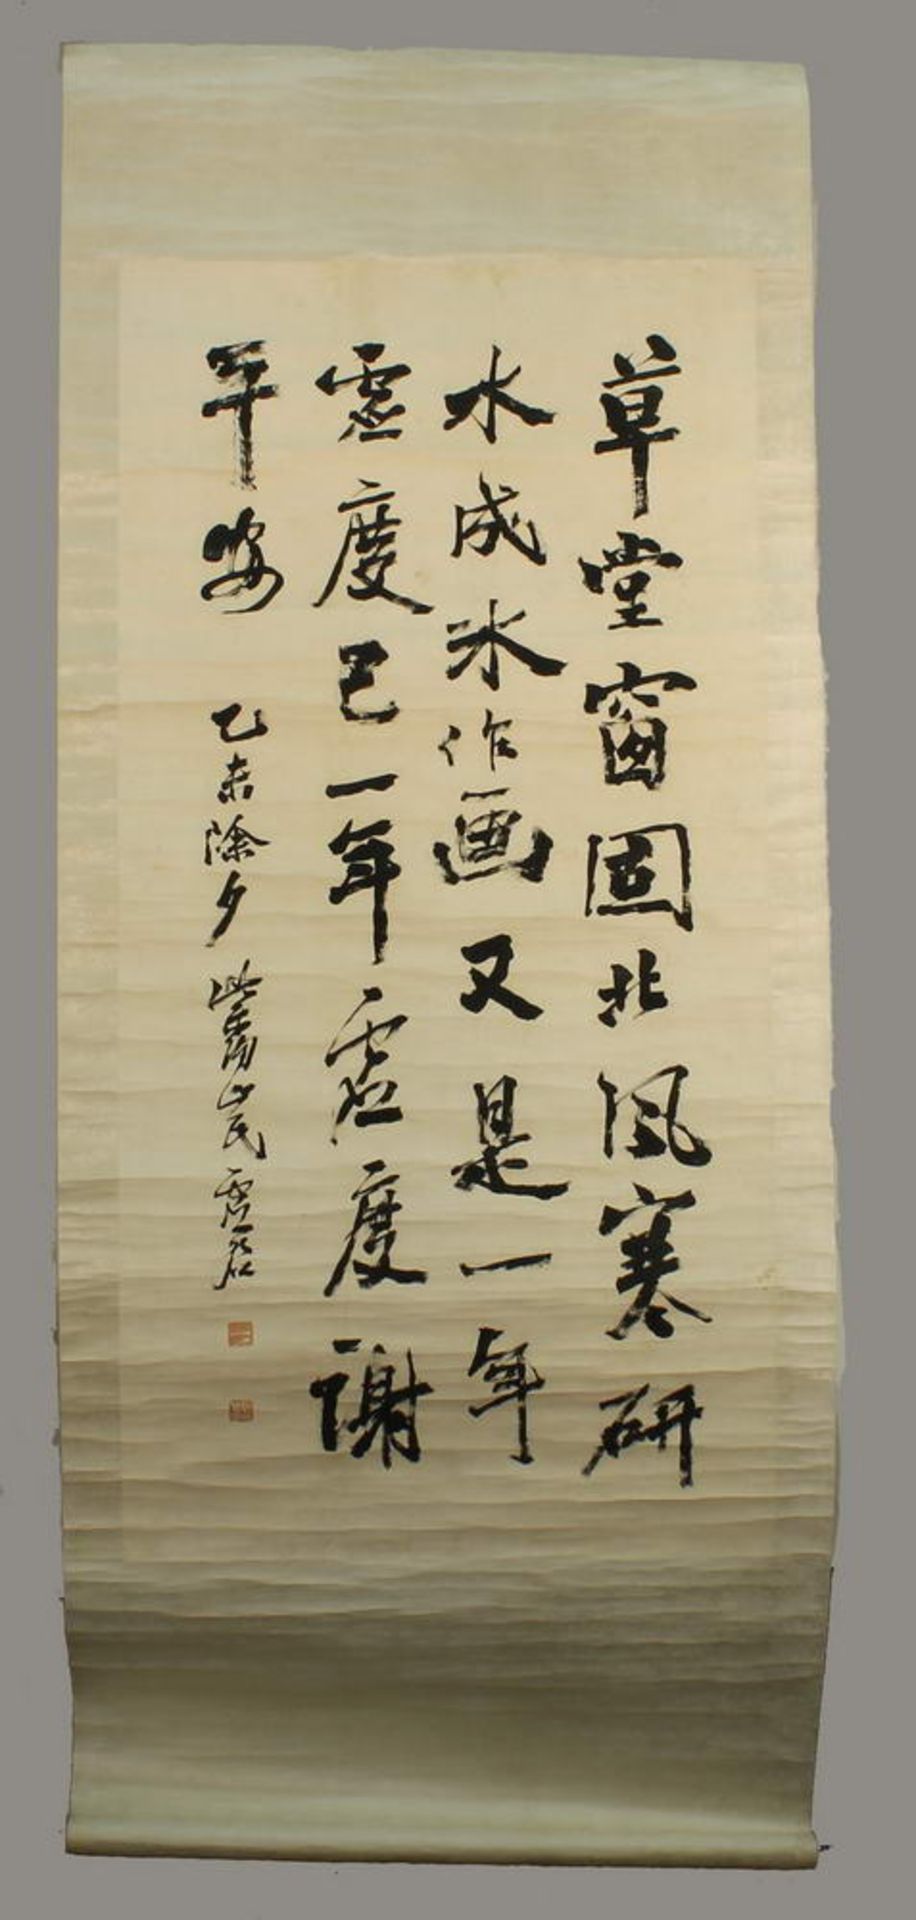 草堂窗固北风寒研
水成冰作画又是一年
虚度已一年虚度谢
平安 乙未除夕 紫阳山民虚谷